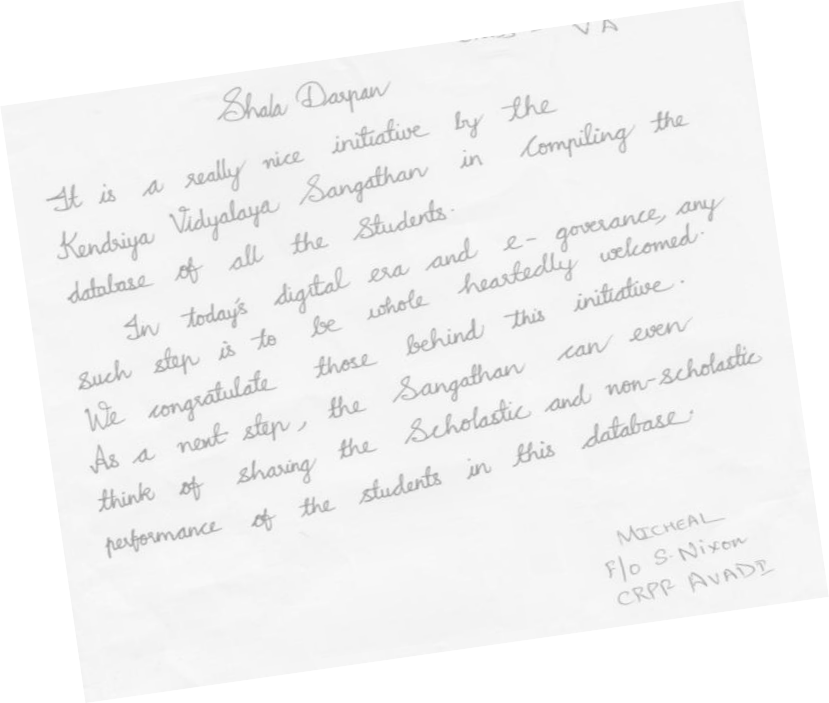 VA
Shala Darpan
It is a really nice initiative by the
Kendriya Vidyalaya Sangathan in Compiling the
database of all the Students.
In today's digital era and e-goverance, any
such step is to be whole heartedly welcomed.
We congratulate those behind this initiative.
As a next step, the Sangathan can even
think of sharing the Scholastic and non-scholastic
performance of the students in this database.
MICHEAL
F/o S. Nixon
CRPF AVADI